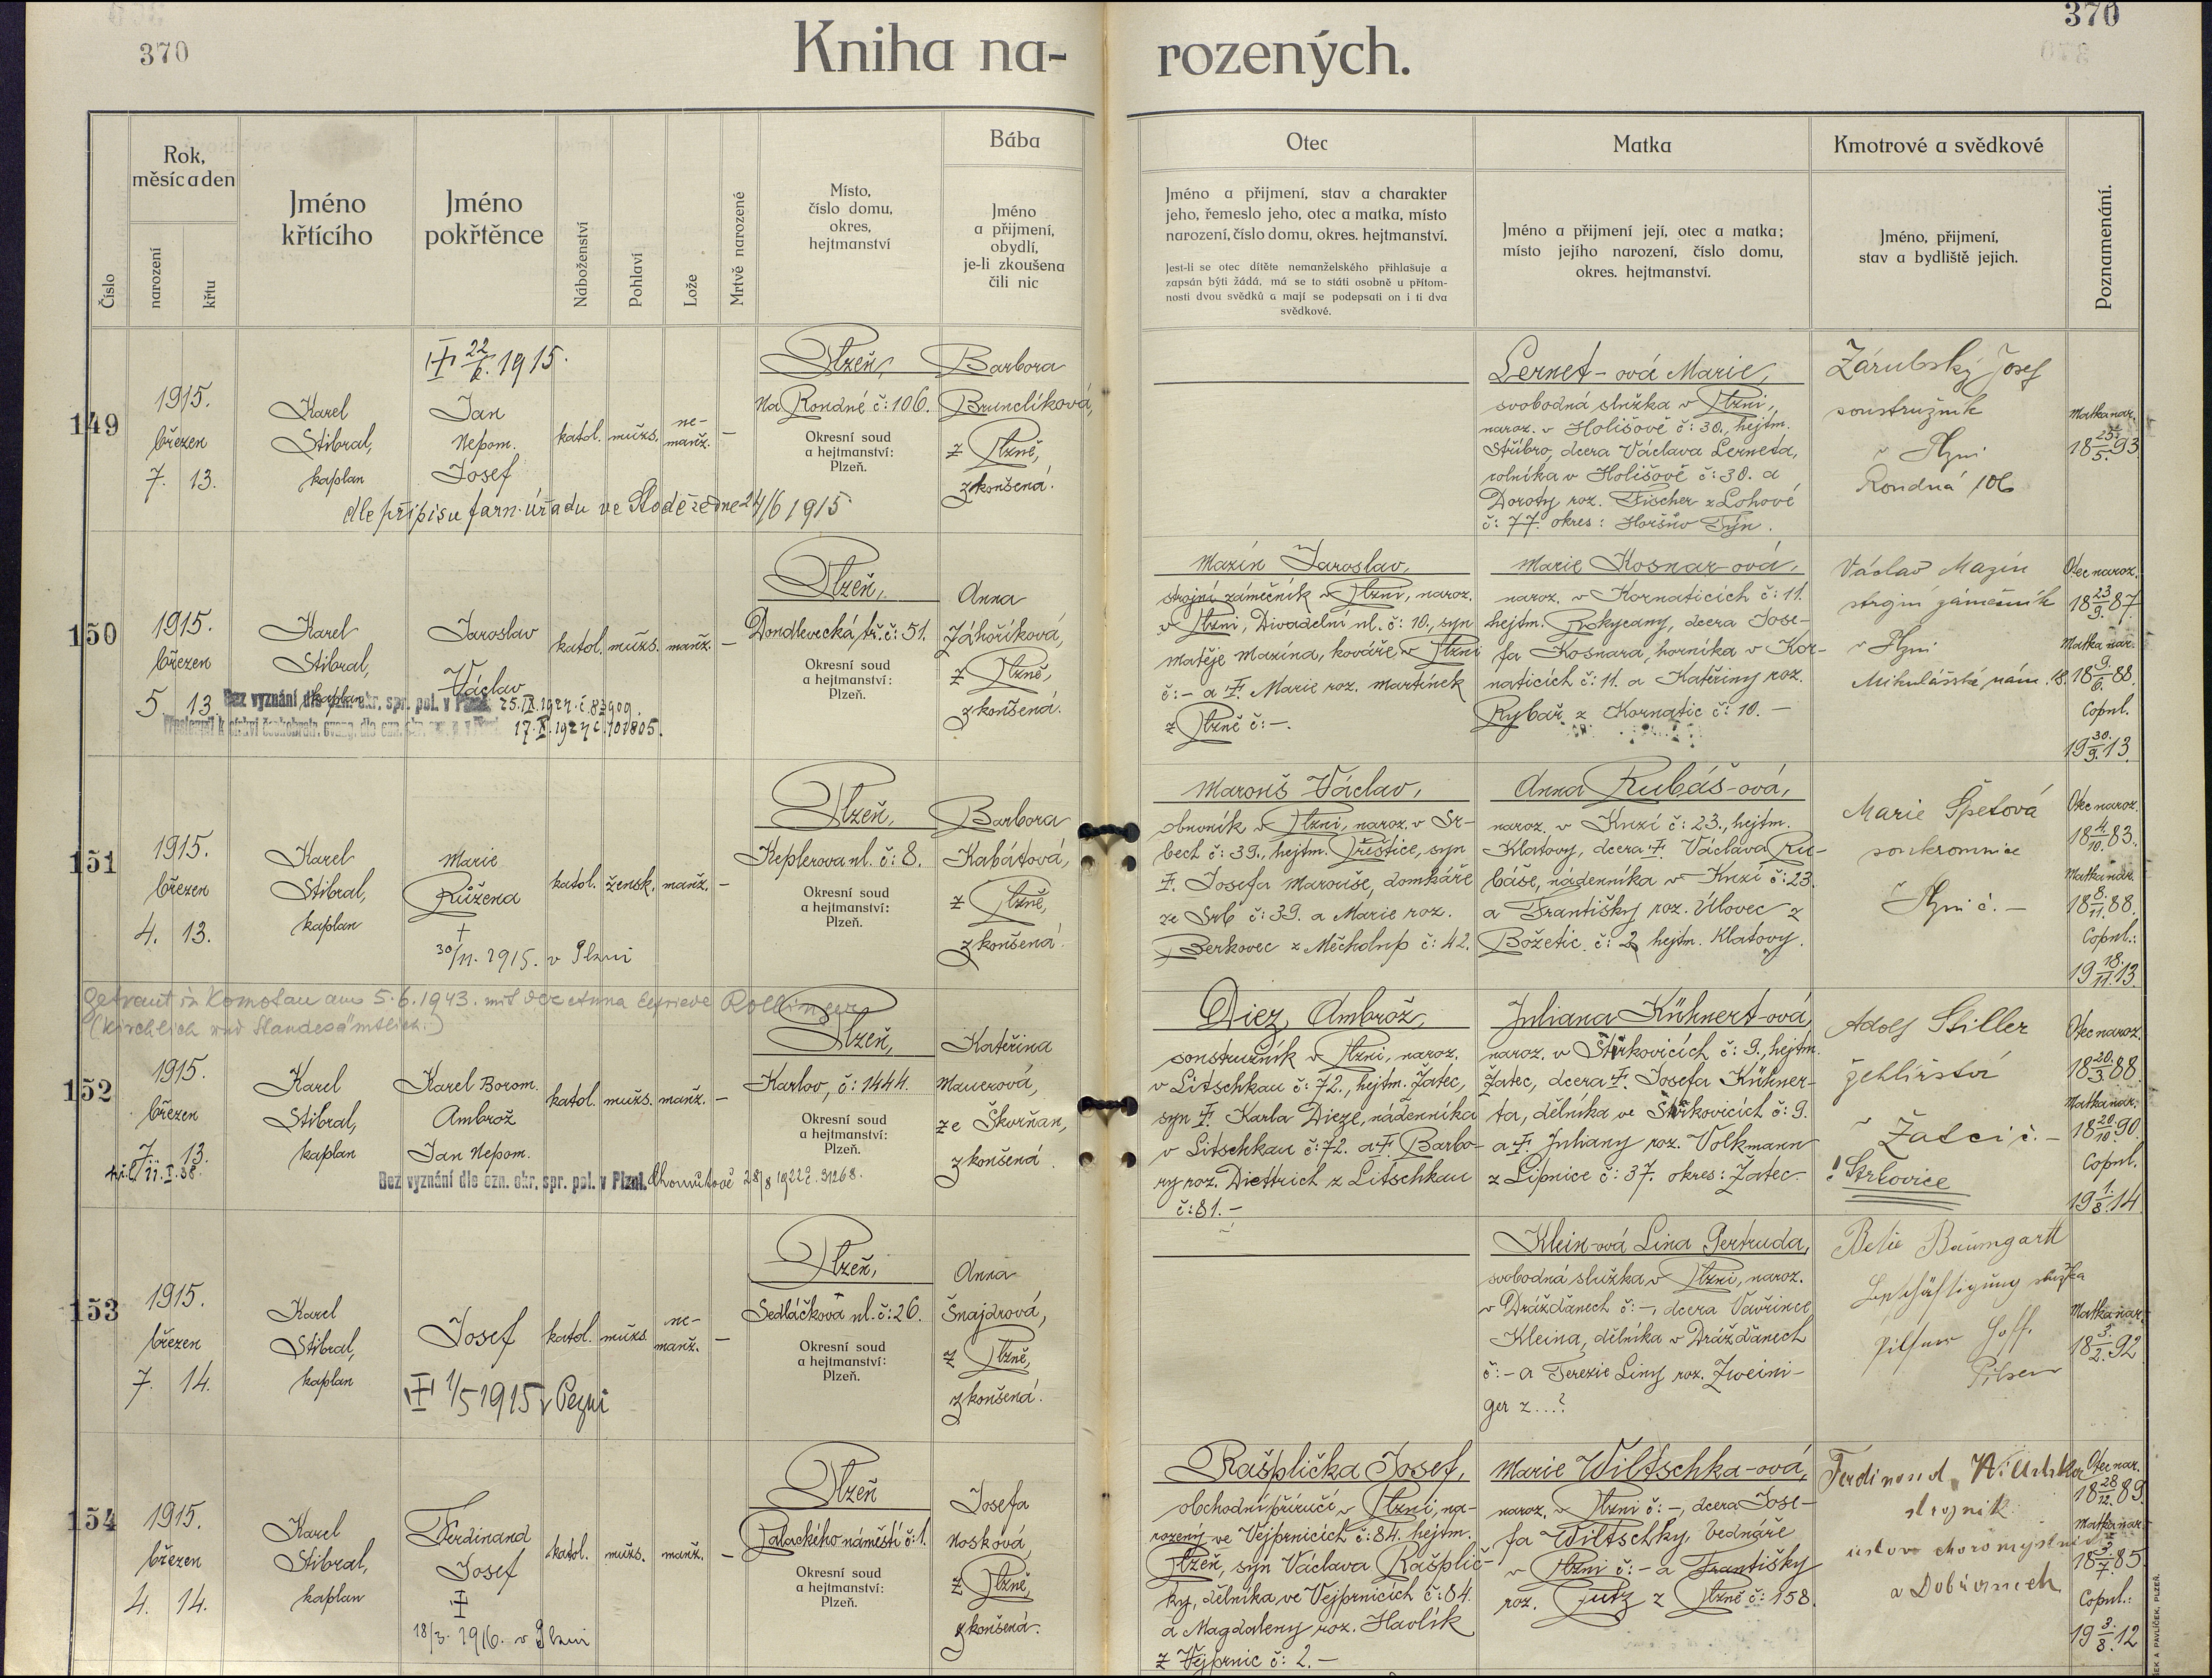 370
370
Kniha na-
rozených.
Číslo
Rok,
měsíc a den
narození
křtu
Jméno
křtícího
Jméno
pokřtěnce
Náboženství
Pohlaví
Lože
Mrtvě narozené
Místo,
číslo domu,
okres,
hejtmanství
Bába
Jméno
a přijmení,
obydlí,
je-li zkoušena
čili nic
Otec
Jméno a přijmení, stav a charakter
jeho, řemeslo jeho, otec a matka, místo
narození, číslo domu, okres. hejtmanství.
Jest-li se otec dítěte nemanželského přihlašuje a
zapsán býti žádá, má se to státi osobně u přítom-
nosti dvou svědků a mají se podepsati on i ti dva
svědkové.
Matka
Jméno a přijmení její, otec a matka;
místo jejího narození, číslo domu,
okres. hejtmanství.
Kmotrové a svědkové
Jméno, přijmení,
stav a bydliště jejich.
Poznamenání.
149
1915.
březen
7. 13.
Karel
Stibral,
kaplan
22/6. 1915.
Jan
Nepom.
Josef
dle přípisu farn. úřadu ve Stodě ze dne 24/6 1915
katol.
mužs.
ne-
manž.
–
Plzeň,
Na Rondné č: 106.
Okresní soud
a hejtmanství:
Plzeň.
Barbora
Brunclíková,
z Plzně,
zkoušená.
Lernet-ová Marie,
svobodná služka v Plzni,
naroz. v Holišově č: 30., hejtm.
Stříbro, dcera Václava Lerneta,
rolníka v Holišově č: 30. a
Doroty roz. Fischer z Lohové
č: 77. okres: Horšův Týn.
Zárubský Josef
soustružník
v Plzni
Rondná 106
Matka nar.
18 25./5. 93.
150
1915.
březen
5 13
Karel
Stibral,
kaplan
Jaroslav
Václav
Bez vyznání dle ozn. okr. spr. pol. v Plzni. 25.IX.1924.č.83909.
17.X.1924 č.101805.
katol.
mužs.
manž.
–
Plzeň,
Dondlevecká tř. č: 51.
Okresní soud
a hejtmanství:
Plzeň.
Anna
Záhoříková,
z Plzně,
zkoušená.
Mazín Jaroslav,
strojní zámečník v Plzni, naroz.
v Plzni, Divadelní ul. č: 10., syn
Matěje Mazína, kováře v Plzni
č: – a Marie roz. Martínek
z Plzně č: –.
Marie Kosnar-ová,
naroz. v Kornaticích č: 11.
hejtm. Rokycany, dcera Jose-
fa Kosnara, horníka v Kor-
naticích č: 11. a Kateřiny roz.
Rybář z Kornatic č: 10. –
Václav Mazín
strojní zámečník
v Plzni
Mikulášské nám. 18.
Otec naroz.
18 23/9. 87.
Matka nar.
18 9./6. 88.
Copul.
19 30./9. 13.
151
1915.
březen
4. 13.
Karel
Stibral,
kaplan
Marie
Růžena
†
30/11. 1915. v Plzni
katol.
žensk.
manž.
–
Plzeň,
Keplerova ul. č: 8.
Okresní soud
a hejtmanství:
Plzeň.
Barbora
Kabátová,
z Plzně,
zkoušená.
Marouš Václav,
obuvník v Plzni, naroz. v Sr-
bech č: 39., hejtm. Přeštice, syn
Josefa Marouše, domkáře
ze Srb č: 39. a Marie roz.
Berkovec z Měcholup č: 42.
Anna Rubáš-ová,
naroz. v Knezí č: 23., hejtm.
Klatovy, dcera Václava Ru-
báše, nádenníka v Knezí č: 23.
a Františky roz. Úlovec z
Božetic č: 2 hejtm. Klatovy.
Marie Špetová
soukromnice
v Plzni č. –
Otec naroz.
18 4./10. 83.
Matka nar.
18 8./11. 88.
Copul.:
19 18./11. 13.
Getraut in Komotau am 5.6.1943. mit der Anna Elfriede Rollinger
(kirchlich und Standesämtlich.)
152
1915.
březen
7. 13.
11.I.38.
Karel
Stibral,
kaplan
Karel Borom.
Ambrož
Jan Nepom.
Bez vyznání dle ozn. okr. spr. pol. v Plzni. Chomutově 28/8 1922 č. 31268.
katol.
mužs.
manž.
–
Plzeň,
Karlov, č: 1444.
Okresní soud
a hejtmanství:
Plzeň.
Kateřina
Mauerová,
ze Škvrňan,
zkoušená.
Diez Ambrož,
soustružník v Plzni, naroz.
v Litschkau č: 72., hejtm. Žatec,
syn Karla Dieze, nádenníka
v Litschkau č: 72. a Barbo-
ry roz. Diettrich z Litschkau
č: 81. –
Juliana Kühnert-ová,
naroz. v Štrkovicích č: 9., hejtm.
Žatec, dcera Josefa Kühner-
ta, dělníka ve Štrkovicích č: 9.
a Juliany roz. Volkmann
z Lipnice č: 37. okres: Žatec.
Adolf Stiller
žehlířství
v Žatci č. –
! Strkovice
Otec naroz.
18 20./3. 88
Matka nar.
18 20/10 90.
Copul.
19 1./8. 14.
153
1915.
březen
7. 14.
Karel
Stibral,
kaplan
Josef
1/5 1915 v Plzni
katol.
mužs.
ne-
manž.
–
Plzeň,
Sedláčkova ul. č: 26.
Okresní soud
a hejtmanství:
Plzeň.
Anna
Šnajdrová,
z Plzně,
zkoušená.
Klein-ová Lina Gertruda,
svobodná služka v Plzni, naroz.
v Drážďanech č: –, dcera Vavřince
Kleina, dělníka v Drážďanech
č: – a Terezie Liny roz. Zweini-
ger z ...?
Betie Baumgartl
služka
Pilsen
Matka nar.
18 3./2. 92
154
1915.
březen
4. 14.
Karel
Stibral,
kaplan
Ferdinand
Josef
18/3. 1916. v Plzni
katol.
mužs.
manž.
–
Plzeň
Palackého náměstí č: 1.
Okresní soud
a hejtmanství:
Plzeň.
Josefa
Nosková,
z Plzně,
zkoušená.
Rašplička Josef,
obchodní příručí v Plzni, na-
rozený ve Vejprnicích č: 84. hejtm.
Plzeň, syn Václava Rašplič-
ky, dělníka ve Vejprnicích č: 84.
a Magdaleny roz. Havlík
z Vejprnic č: 2. –
Marie Wiltschka-ová,
naroz. v Plzni č: –, dcera Jose-
fa Wiltschky, bednáře
v Plzni č: – a Františky
roz. Gutz z Plzně č: 158.
Ferdinand Wiltschka
strojník
ústavu choromyslných
v Dobřanech
Otec nar.
18 28/12. 89.
Matka nar.
18 3/7. 85.
Copul.:
19 3./8. 12